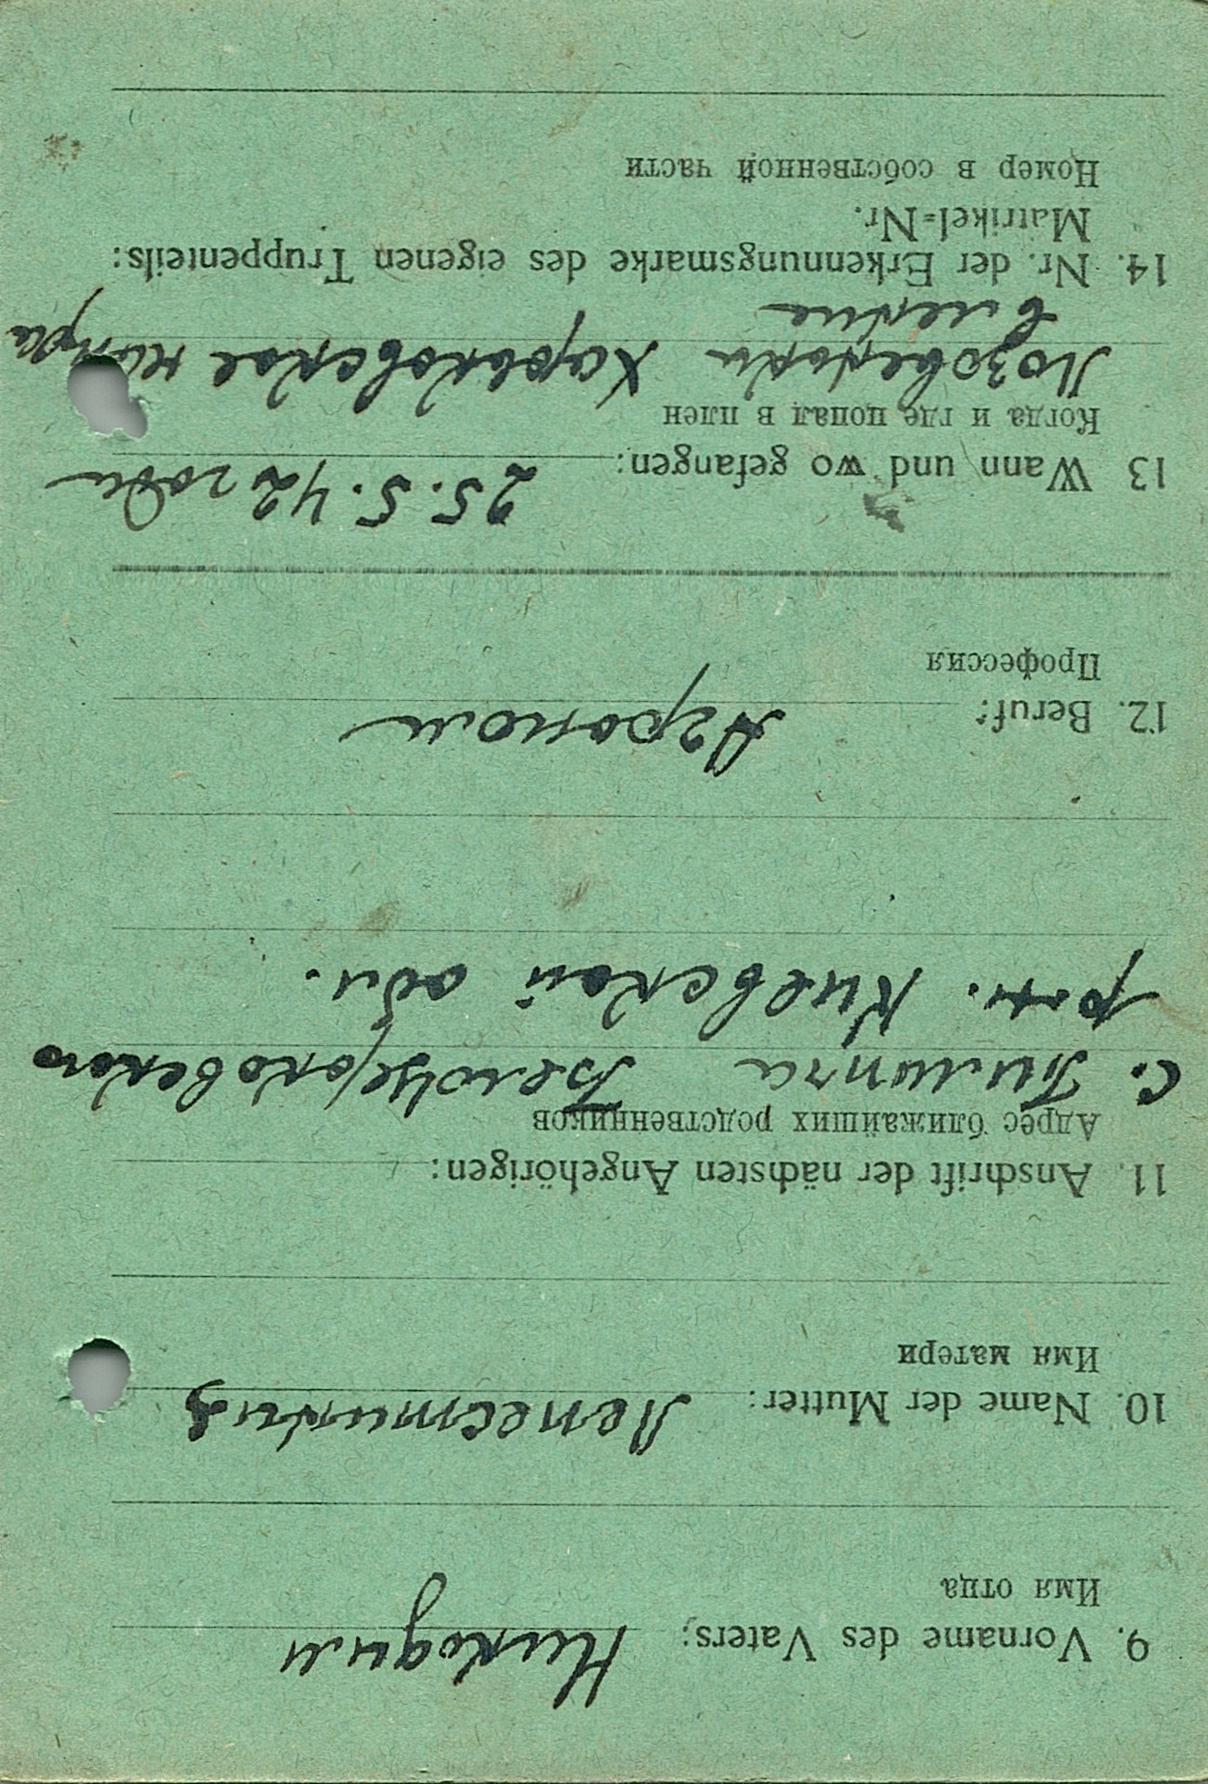 9. Vorname des Vaters: Никодим
Имя отца
10. Name der Mutter:
Имя матери
11. Anschrift der nächsten Angehörigen:
Адрес ближайших родственников
с. Пилипча Белоцерковского
р-н. Киевской обл.
12. Beruf: Агроном
Профессия
13 Wann und wo gefangen: 25.5.42 года
Когда и где попал в плен
Харьковское
14. Nr. der Erkennungsmarke des eigenen Truppenteils:
Matrikel-Nr.
Номер в собственной части